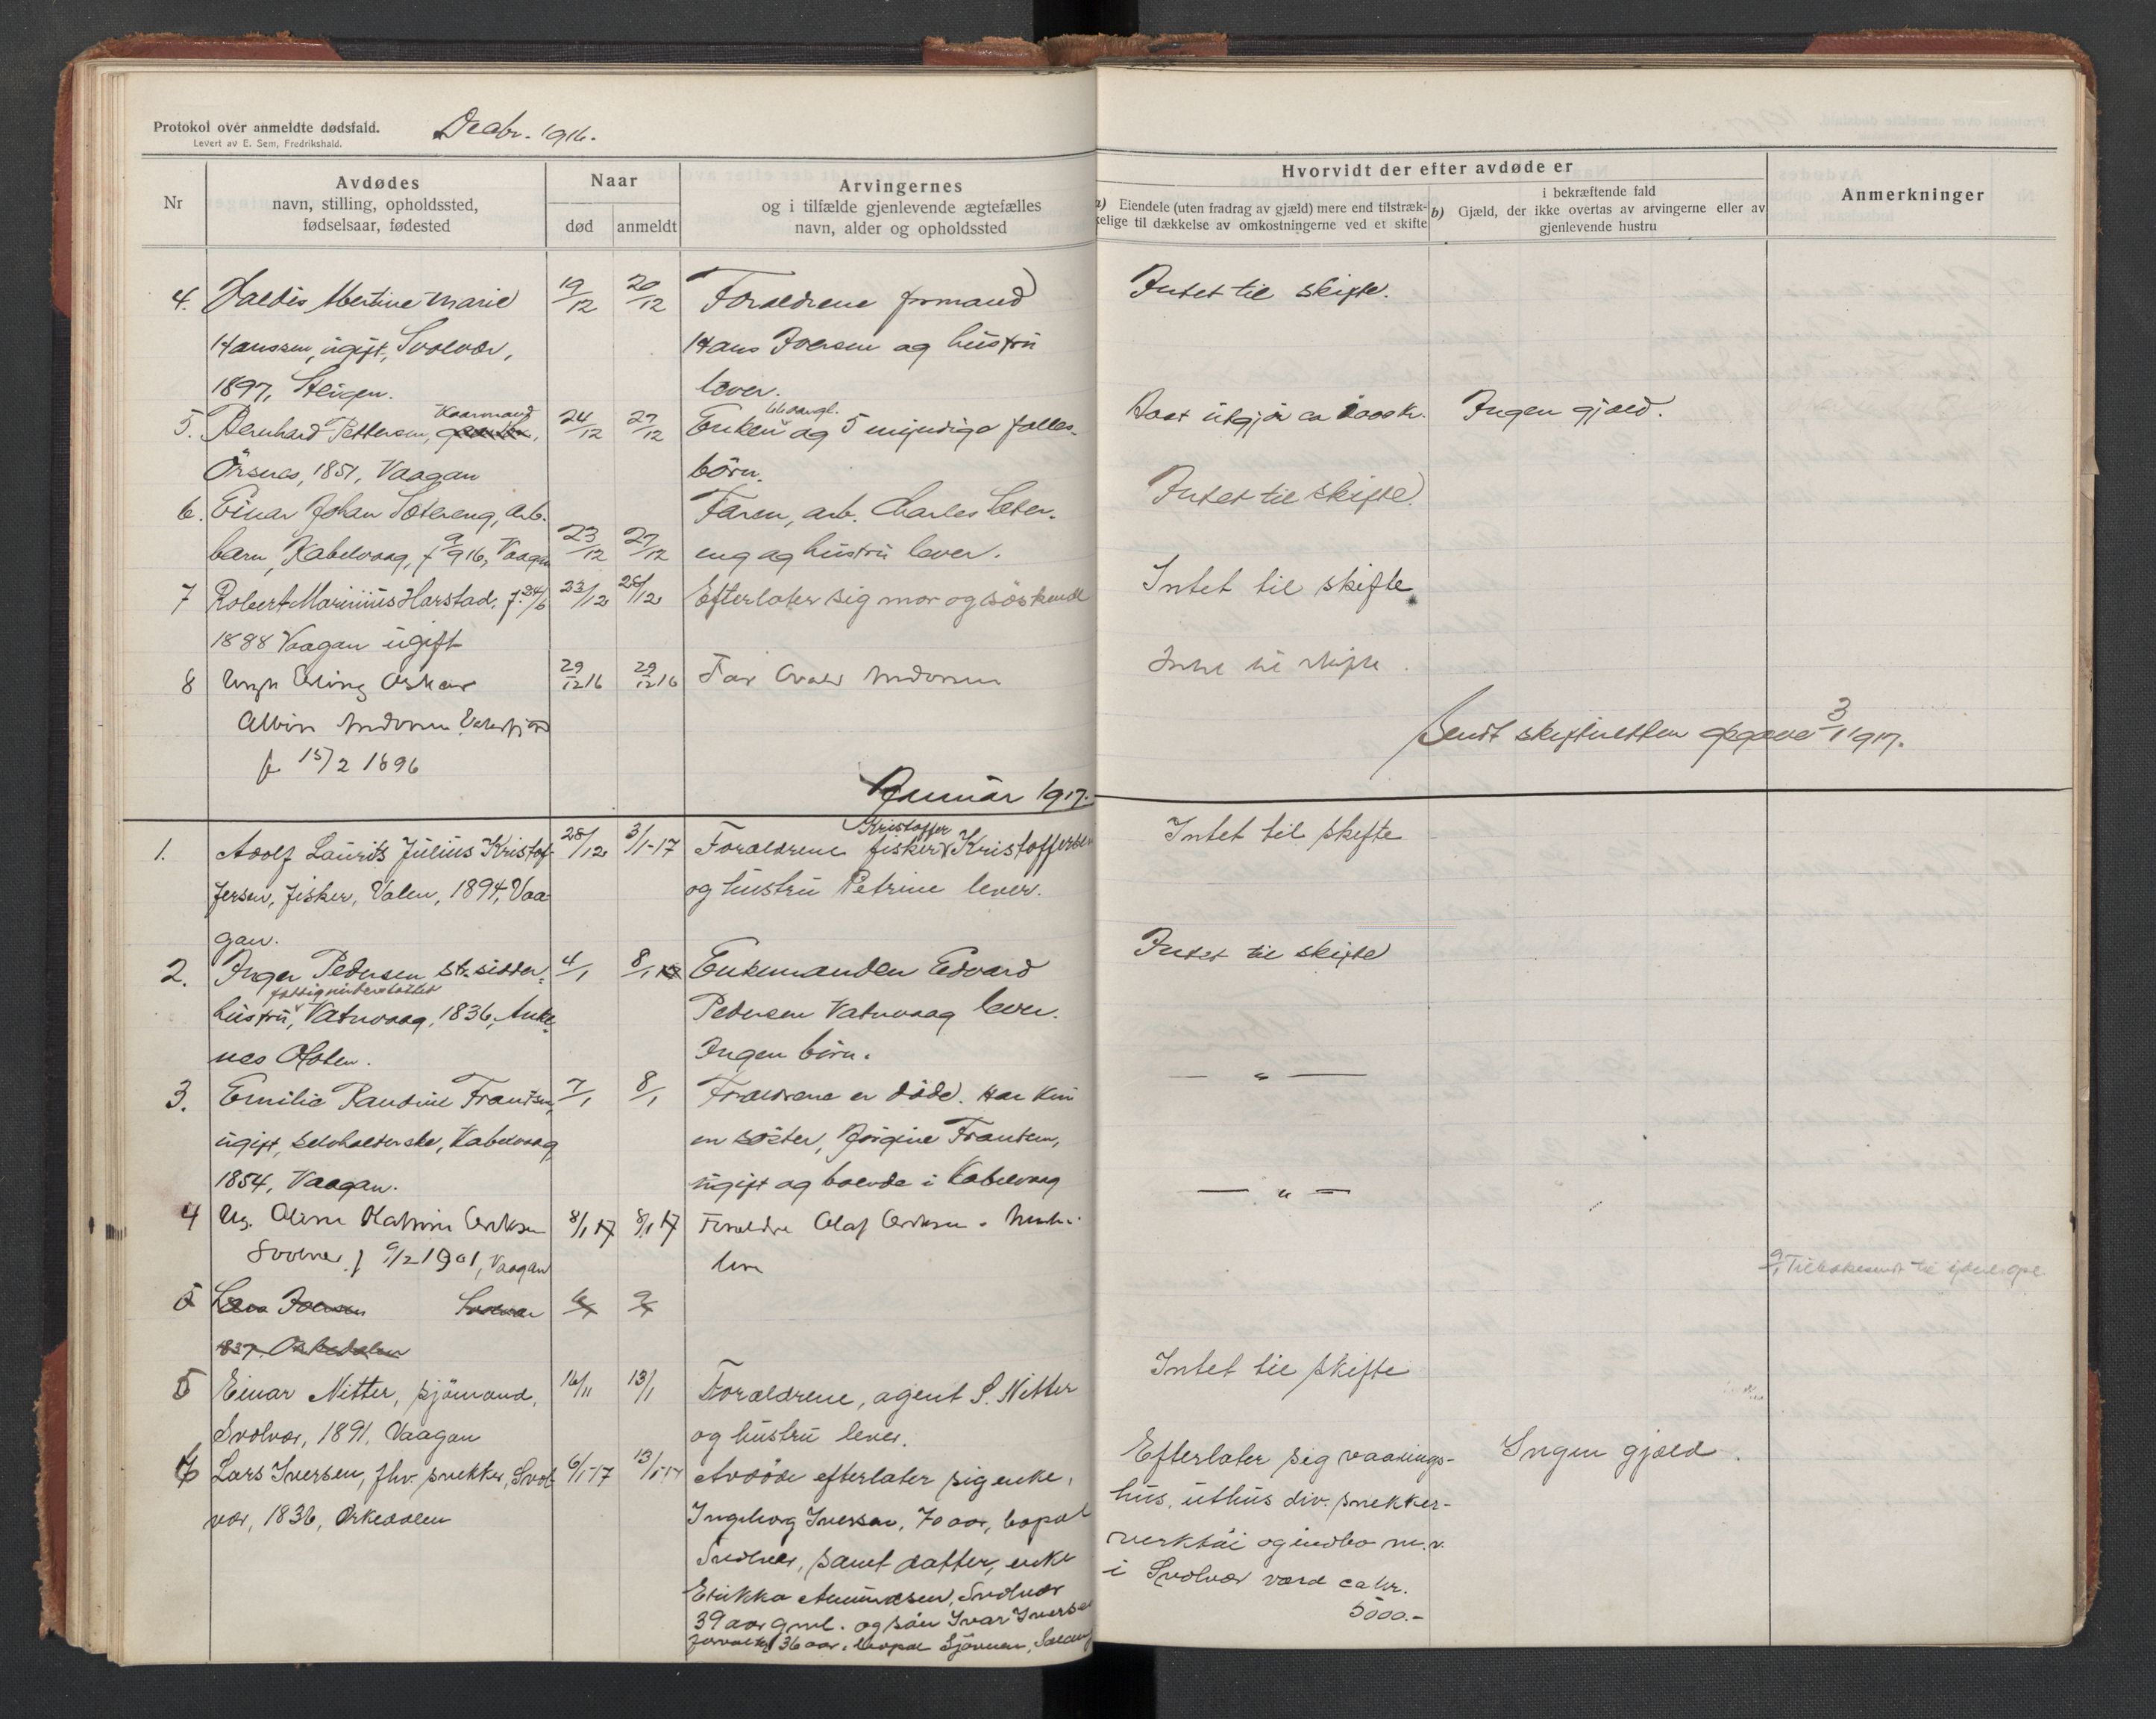 Protokol over anmeldte dødsfald.
Levert av E. Sem, Fredrikshald.
Decbr. 1916.
Nr
Avdødes
navn, stilling, opholdssted,
fødselsaar, fødested
Naar
død
anmeldt
Arvingernes
og i tilfælde gjenlevende ægtefælles
navn, alder og opholdssted
4. Valdis Albertine Marie
Hanssen, ugift, Svolvær,
1897, Steigen.
19/12 20/12
Forældrene formand
Hans Joensen og hustru
lever.
5. Bernhard Pettersen, kaarmand
Örsnes, 1851, Vaagan
24/12 27/12
Enken 66 aar gl. og 5 myndige fælles-
börn.
6. Einar Johan Sætereng, arb.
barn, Kabelvaag, f 9/9 16, Vaagan
23/12 27/12
Faren, arb. Charles Sæter-
eng og hustru lever.
7 Robert Marinius Harstad, f. 24/6
1888 Vaagan ugift
23/12 28/12
Efterlater sig mor og söskende
8 Ungk Erling Oskar
Albin Andorsen
f 15/2 1896
29/12 16 29/12 16
Far Andorsen
Januar 1917.
1. Adolf Laurits Julius Kristof-
fersen, fisker, Valen, 1894, Vaa-
gan.
28/12 3/1-17
Forældrene fisker Kristoffer Kristoffersen
og hustru Petrine lever.
2. Inger Pedersen str.sidder-
hustru, fattigunderstöttet Vatnvaag, 1836, Anke-
nes Ofoten.
4/1 8/1 17
Enkemanden Edvard
Pedersen Vatnvaag lever.
Ingen börn.
3. Emilie Paudine Frantsen,
ugift, selvholderske, Kabelvaag
1854, Vaagan.
7/1 8/1
Forældrene er döde. Har kun
en söster, Jörgine Frantsen,
ugift og boende i Kabelvaag
4 Ug. Oline Katrine Eriksen
Svolvær f 9/2 1901, Vaagan
8/1 17 8/1 17
Forældre Olaf Eriksen o. hustru
leve
5 Lars Joensen Svolvær
1837, Orkedalen
6/1 9/1
5 Einar Nitter, sjömand,
Svolvær, 1891, Vaagan
16/11 13/1
Forældrene, agent S. Nitter
og hustru lever.
6 Lars Iversen, fhv. snekker, Svol-
vær, 1836, Orkedalen
6/1-17 13/1-17
Avdöde efterlater sig enke,
Ingeborg Iversen, 70 aar, bopæl
Svolvær, samt datter, enke
Erikka Amundsen, Svolvær
39 aar gml. og sön Ivar Iversen
36 aar, bopæl
Hvorvidt der efter avdøde er
a) Eiendele (uten fradrag av gjæld) mere end tilstræk-
kelige til dækkelse av omkostningerne ved et skifte
b) i bekræftende fald
Gjæld, der ikke overtas av arvingerne eller av
gjenlevende hustru
Anmerkninger
Intet til skifte.
Boet utgjör ca 1000 kr. Ingen gjæld.
Intet til skifte
Intet til skifte
Intet til skifte.
Sendt skifteretten opgave 3/1 1917.
Intet til skifte
Intet til skifte
— " —
— " —
9/1 Tilbakesendt til
Intet til skifte
Efterlater sig vaanings-
hus, uthus div. snekker-
verktöi og indbo m.v.
i Svolvær værd ca kr.
5000.-
Ingen gjæld.